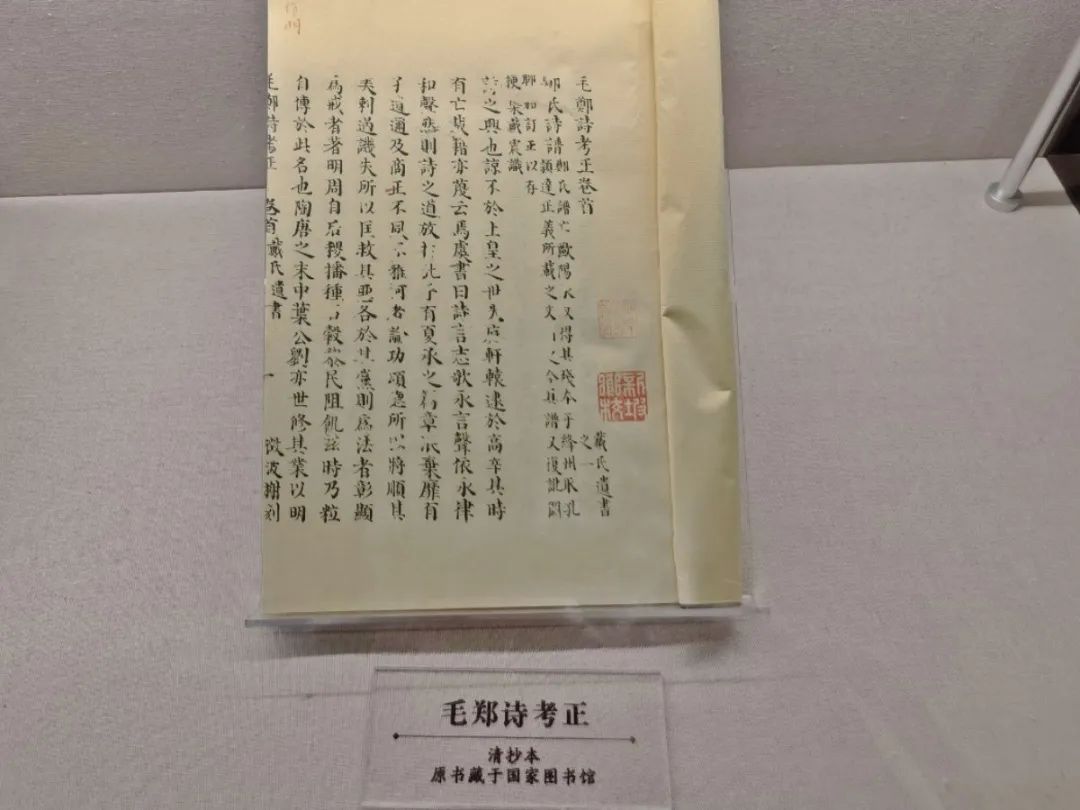 毛鄭詩考正卷首
戴氏遺書
之一
鄭氏詩譜
鄭氏譜亡歐陽永又得其殘本于絳州取孔
穎達正義所載之文之今其譜又復訛闕
聊加訂正以存
梗槩戴震識
詩之興也諒不於上皇之世大庭軒轅逮於高辛其時
有亡載籍亦蔑云焉虞書曰詩言志歌永言聲依永律
和聲然則詩之道放於此乎有夏承之篇章泯棄靡有
孑遺邇及商王不風不雅何者論功頌德所以將順其
美刺過譏失所以匡救其惡各於其黨則爲法者彰顯
爲戒者著明周自后稷播種百穀黎民阻飢茲時乃粒
自傳於此名也陶唐之末中葉公劉亦世修其業以明
毛鄭詩考正
卷首戴氏遺書
一
微波榭刻
毛郑诗考正
清抄本
原书藏于国家图书馆